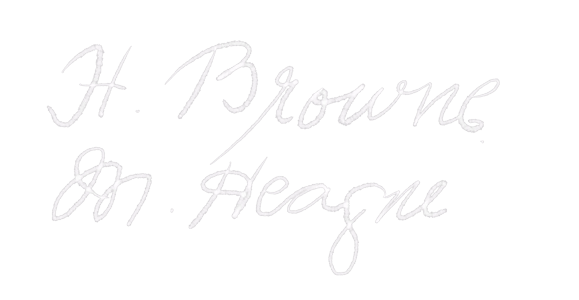 H. Browne
M. Heagne